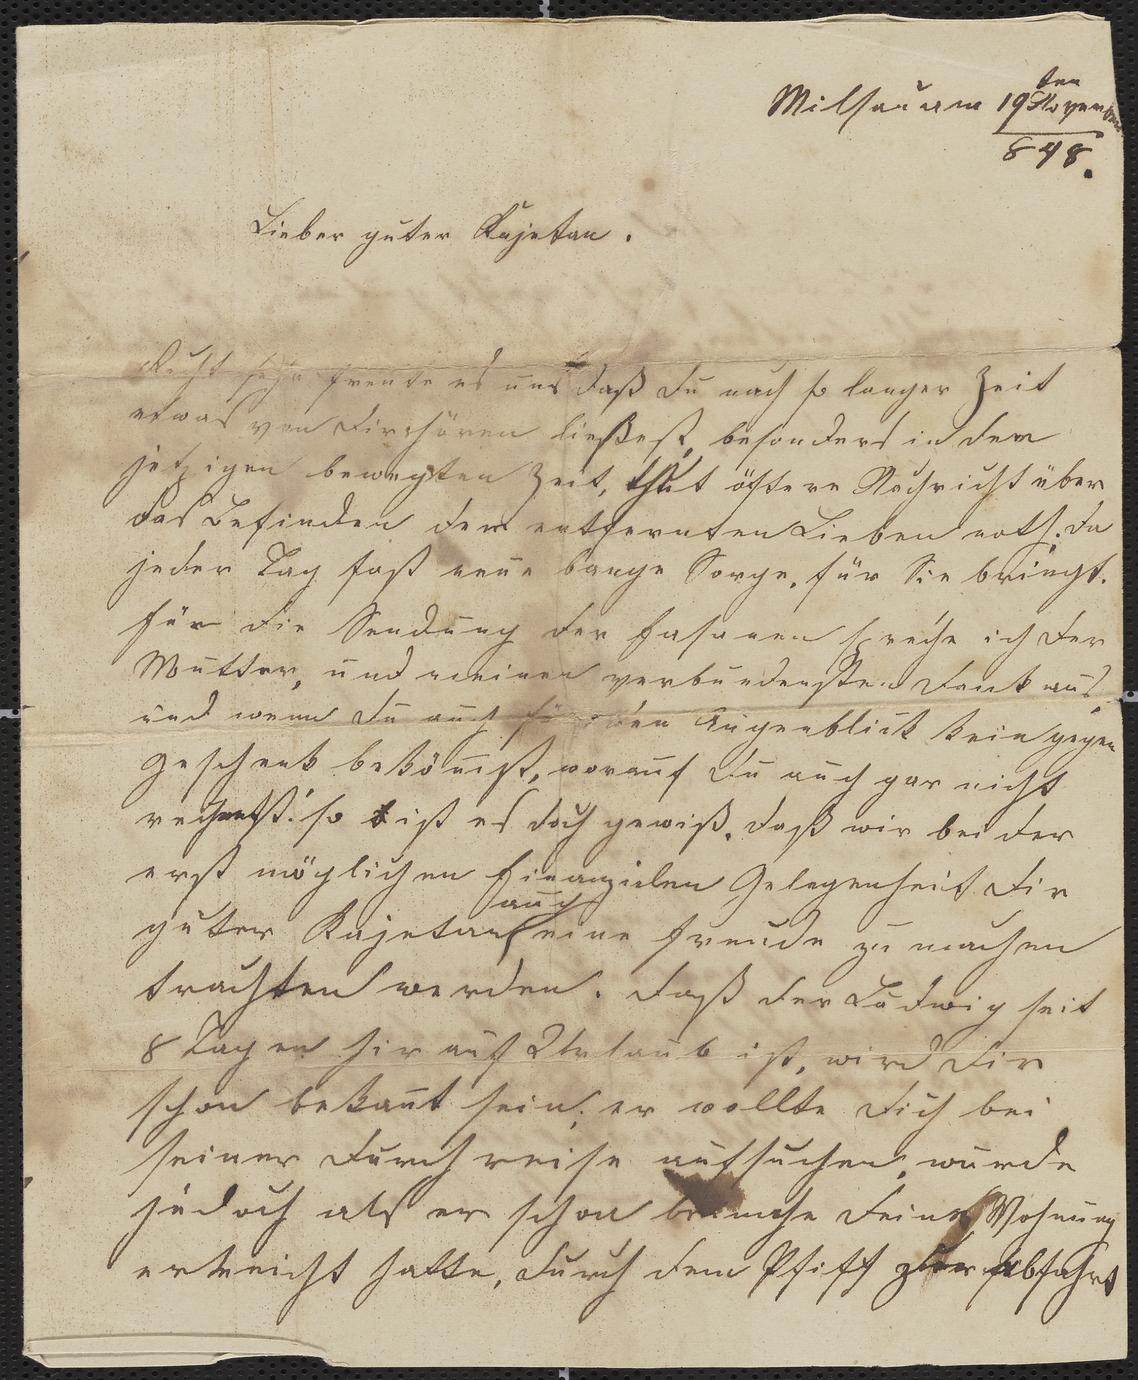 Milsau am 19ten November
848.
Lieber guter Kajetan.
Recht sehr freute es uns daß Du nach so langer Zeit
etwas von Dir hören ließest, besonders in der
jetzigen bewegten Zeit, thut öftere Nachricht über
das Befinden der entfernten Lieben noth. Da
jeder Tag fast neue bange Sorge, für Sie bringt.
für die Sendung der Fasanen spreche ich der
Mutter, und meinen verbundensten Dank aus
und wenn Du auch für den Augenblick kein gegen
geschenk beköm̅st, worauf Du auch gar nicht
rechnetst! so ist es doch gewiß, daß wir bei der
erst möglichen finanzielen Gelegenheit Dir
guter Kajetan auch eine Freude zu machen
trachten werden. Daß der Ludwig seit
8 Tagen hir auf Urlaub ist, wird Dir
schon bekan̅t sein; er wollte Dich bei
seiner Durchreise aufsuchen, wurde
jedoch als er schon beinahe Deine Wohnung
erreicht hatte, durch dem Pfiff zur Abfahrt